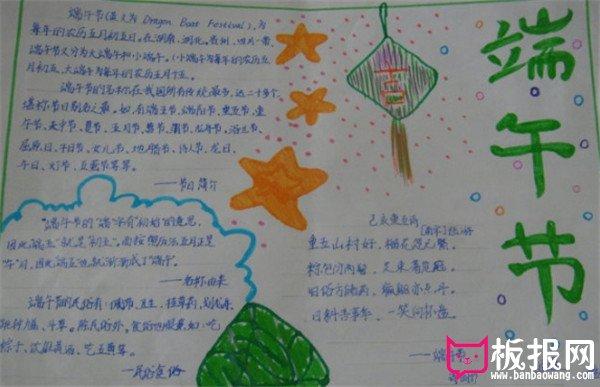 端午节
端午节(英文为 Dragon Boat Festival),为
每年的农历五月初五日。在湖南、湖北、贵州、四川一带,
端午节又分为大端午和小端午。(小端午为每年的农历五
月初五,大端午为每年的农历五月十五。
端午节的名称在我国所有传统最多,达二十多个,
堪称节日别名之最。如,有端五节、端阳节、重五节、重
午节、天中节、夏节、五月节、菖节、蒲节、龙舟节、浴兰节、
屈原日、午日节、女儿节、地腊节、诗人节、龙日、
午日、灯节、五蛋节等等。
——节日简介
"端午节的"端"字有"初始"的意思,
因此"端五"就是"初五"。而按照历法五月正是
"午"月,因此"端五"也就渐渐成了"端午"。
——名称由来
端午节的民俗有:
跳钟馗、斗草。除民俗外,
粽子、饮雄黄酒、吃五毒等。
乙卯重五诗
[南宋]陆游
重五山村好,榴花忽已繁。
粽包分两髻,艾束著危冠。
旧俗方储药,羸躯亦点丹。
日斜吾事毕,一笑向杯盘。
板报网
www.banbaowang.com